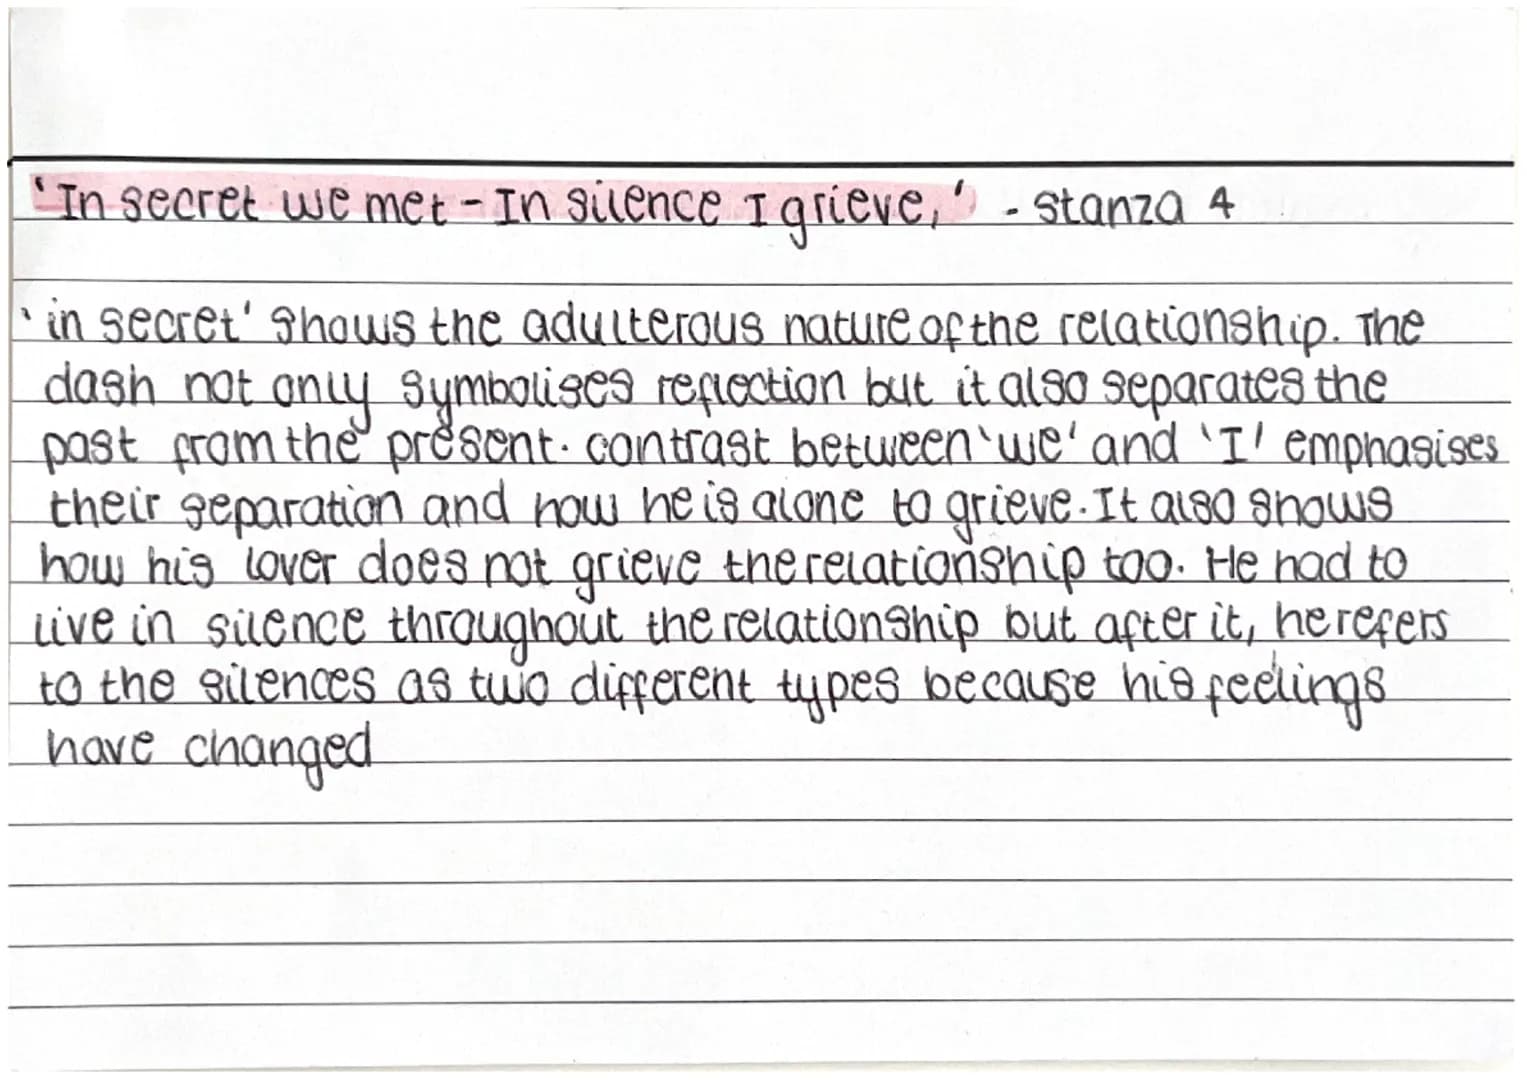 'In secret we met - In silence I grieve,' - stanza 4
'in secret' shows the adulterous nature of the relationship. The
dash not only symbolises reflection but it also separates the
past from the present. contrast between 'we' and 'I' emphasises
their separation and how he is alone to grieve. It also shows
how his lover does not grieve the relationship too. He had to
live in silence throughout the relationship but after it, he refers
to the silences as two different types because his feelings
have changed